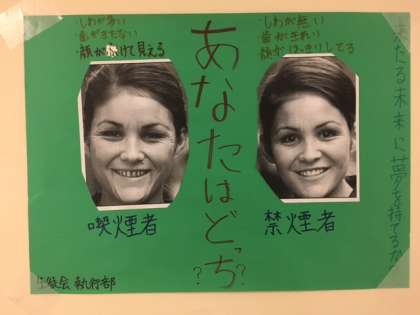 ・しわが多い
・歯がきたない
・顔がふけて見える
あなたはどっち??
・しわが無い
・歯がきれい
・顔がはっきりしてる
喫煙者
禁煙者
未来に夢を持てるか
生徒会 執行部